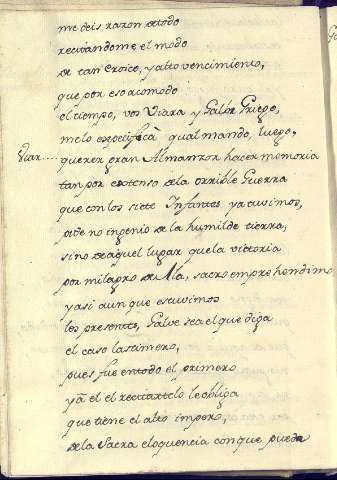 me deis razon de todo
recitandome el modo
de tan eroico, y alto vencimiento,
que por eso acomodo
el tiempo, vos Viara y Galve Griego,
melo especificà qual mando, luego,
Viar.... querer gran Almanzor hacer memoria
tan por estenso de la orrible Guerra
que con los siete Infantes ya tuvimos,
pide no ingenio de la humilde tierra,
sino de aquel lugar que la victoria
por milagro de Ala, sacro emprehendimos
y asi aun que estuvimos
los presentes, Galve sea el que diga
el caso lastimero,
pues fue en todo el primero
y à el el recitartelo le obliga
que tiene el alto impero,
de la Sacra eloquencia con que pueda